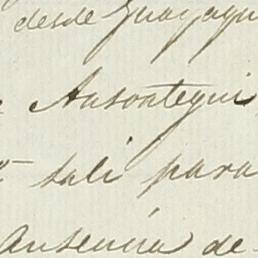 desde Guayaqui
Ansontegui
sali para
ausencia de